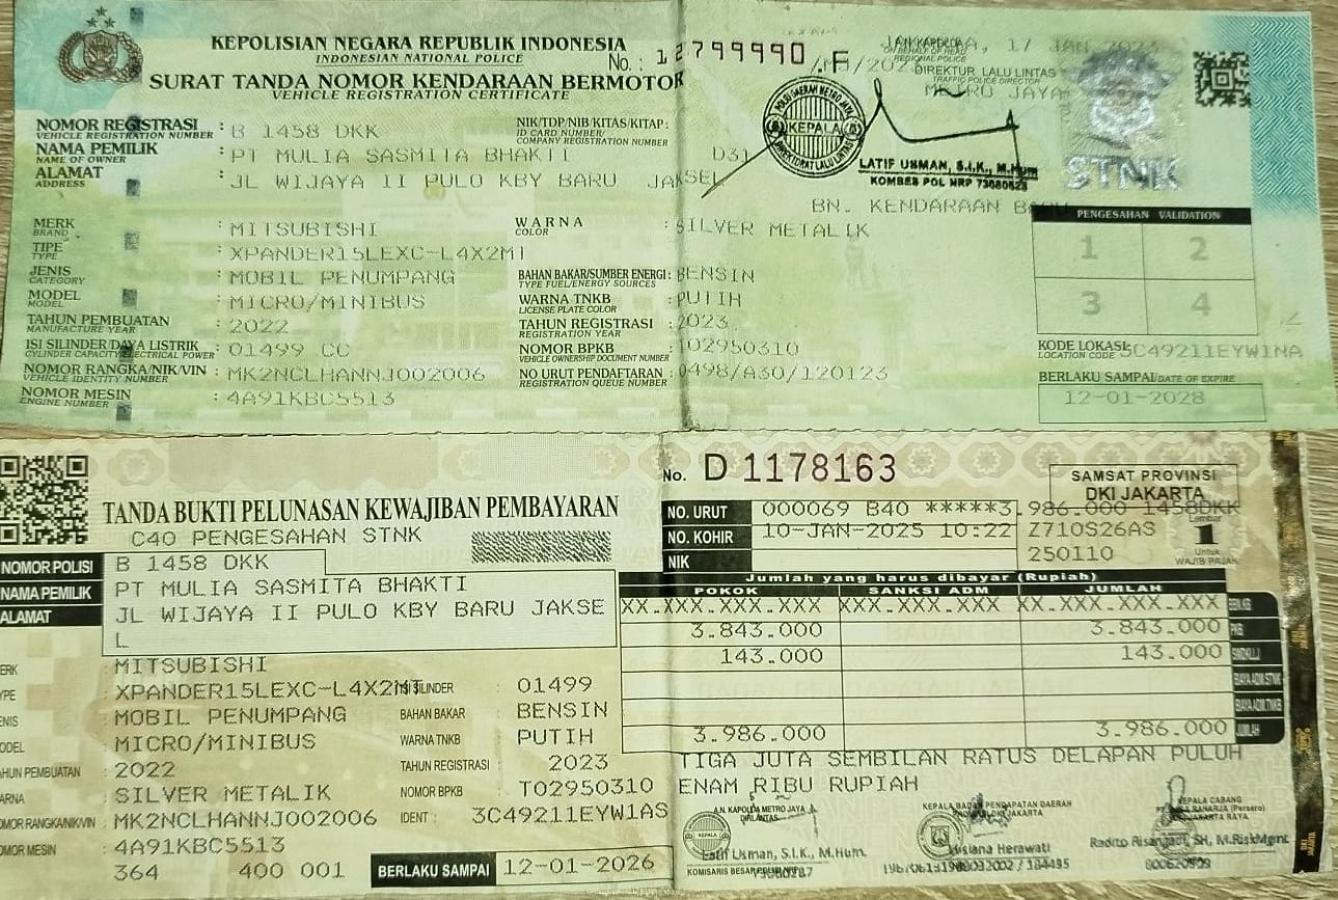 KEPOLISIAN NEGARA REPUBLIK INDONESIA
INDONESIAN NATIONAL POLICE
No. : 12799990 .F
SURAT TANDA NOMOR KENDARAAN BERMOTOR
VEHICLE REGISTRATION CERTIFICATE
17 JAN
DIREKTUR LALU LINTAS
TRAFFIC POLICE DIRECTOR
METRO JAYA
KEPALA
LATIF USMAN, S.I.K., M.Hum
KOMBES POL NRP
STNK
NOMOR REGISTRASI : B 1458 DKK
VEHICLE REGISTRATION NUMBER
NIK/TDP/NIB/KITAS/KITAP:
ID CARD NUMBER/
COMPANY REGISTRATION NUMBER
NAMA PEMILIK : PT MULIA SASMITA BHAKTI
NAME OF OWNER
D31
ALAMAT : JL WIJAYA II PULO KBY BARU JAKSEL
ADDRESS
BN. KENDARAAN
MERK : MITSUBISHI
BRAND
WARNA : SILVER METALIK
COLOR
TIPE : XPANDER15LEXC-L4X2MT
TYPE
JENIS : MOBIL PENUMPANG
CATEGORY
BAHAN BAKAR/SUMBER ENERGI : BENSIN
TYPE FUEL/ENERGY SOURCES
MODEL : MICRO/MINIBUS
MODEL
WARNA TNKB : PUTIH
LICENSE PLATE COLOR
TAHUN PEMBUATAN : 2022
MANUFACTURE YEAR
TAHUN REGISTRASI : 2023
REGISTRATION YEAR
ISI SILINDER/DAYA LISTRIK : 01499 CC
CYLINDER CAPACITY/ELECTRICAL POWER
NOMOR BPKB : T02950310
VEHICLE OWNERSHIP DOCUMENT NUMBER
NOMOR RANGKA/NIK/VIN : MK2NCLHANNJ002006
VEHICLE IDENTITY NUMBER
NO URUT PENDAFTARAN : 0498/A30/120123
REGISTRATION QUEUE NUMBER
NOMOR MESIN : 4A91KBC5513
ENGINE NUMBER
PENGESAHAN VALIDATION
1 2
3 4
KODE LOKASI: 3C49211EYW1NA
LOCATION CODE
BERLAKU SAMPAI/DATE OF EXPIRE
12-01-2028
TANDA BUKTI PELUNASAN KEWAJIBAN PEMBAYARAN
C40 PENGESAHAN STNK
No. D 1178163
SAMSAT PROVINSI
DKI JAKARTA
NO. URUT 000069 B40 *****3.986.000 1458DKK
NO. KOHIR 10-JAN-2025 10:22 Z710S26AS
NIK 250110
Lembar
1
Untuk
WAJIB PAJAK
NOMOR POLISI B 1458 DKK
NAMA PEMILIK PT MULIA SASMITA BHAKTI
ALAMAT JL WIJAYA II PULO KBY BARU JAKSE
L
Jumlah yang harus dibayar (Rupiah)
POKOK SANKSI ADM JUMLAH
XX.XXX.XXX.XXX XXX.XXX.XXX.XXX XX.XXX.XXX.XXX
3.843.000 3.843.000 PKB
143.000 143.000 SWDKLLJ
BIAYA ADM STNK
BIAYA ADM TNKB
3.986.000 3.986.000 JUMLAH
TIGA JUTA SEMBILAN RATUS DELAPAN PULUH
ENAM RIBU RUPIAH
ERK : MITSUBISHI
YPE : XPANDER15LEXC-L4X2MT
SILINDER : 01499
ENIS : MOBIL PENUMPANG
BAHAN BAKAR : BENSIN
ODEL : MICRO/MINIBUS
WARNA TNKB : PUTIH
AHUN PEMBUATAN : 2022
TAHUN REGISTRASI : 2023
ARNA : SILVER METALIK
NOMOR BPKB : T02950310
OMOR RANGKA/NIK/VIN : MK2NCLHANNJ002006
IDENT : 3C49211EYW1AS
OMOR MESIN : 4A91KBC5513
364 400 001
BERLAKU SAMPAI 12-01-2026
A.N. KAPOLDA METRO JAYA
DIRLANTAS
KEPALA
Latif Usman, S.I.K., M.Hum.
KEPALA BADAN PENDAPATAN DAERAH
Herawati
KEPALA CABANG
JAKARTA RAYA